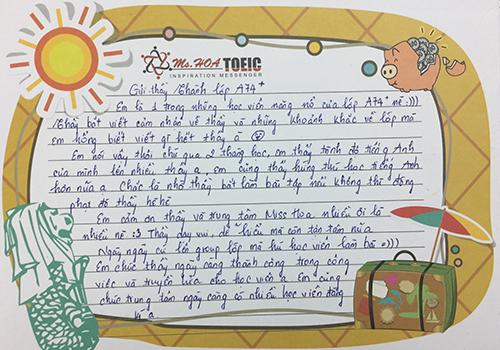 Ms. HOA TOEIC
INSPIRATION MESSENGER
Gửi thầy Khanh lớp A74
Em là 1 trong những học viên năng nổ của lớp A74 nè :)))
Thầy bắt viết cảm nhận về thầy và những khoảnh khắc về lớp mà
em hổng biết viết gì hết thầy à
Em nói vậy thôi chứ qua 2 tháng học, em thấy trình độ tiếng Anh
của mình lên nhiều thầy ạ, em cũng thấy hứng thú học tiếng Anh
hơn nữa ạ Chắc là nhờ thầy bắt làm bài tập nói không thì đóng
phạt đó thầy hé hé
Em cảm ơn thầy và trung tâm Miss Hoa nhiều ơi là
nhiều nè :3 Thầy dạy vui, dễ hiểu mà còn tận tâm nữa
Ngày ngày cứ lên group lớp mà hú học viên làm bài =)))
Em chúc thầy ngày càng thành công trong công
việc và truyền lửa cho học viên ạ Em cũng
chúc trung tâm ngày càng có nhiều học viên đăng
kí ạ